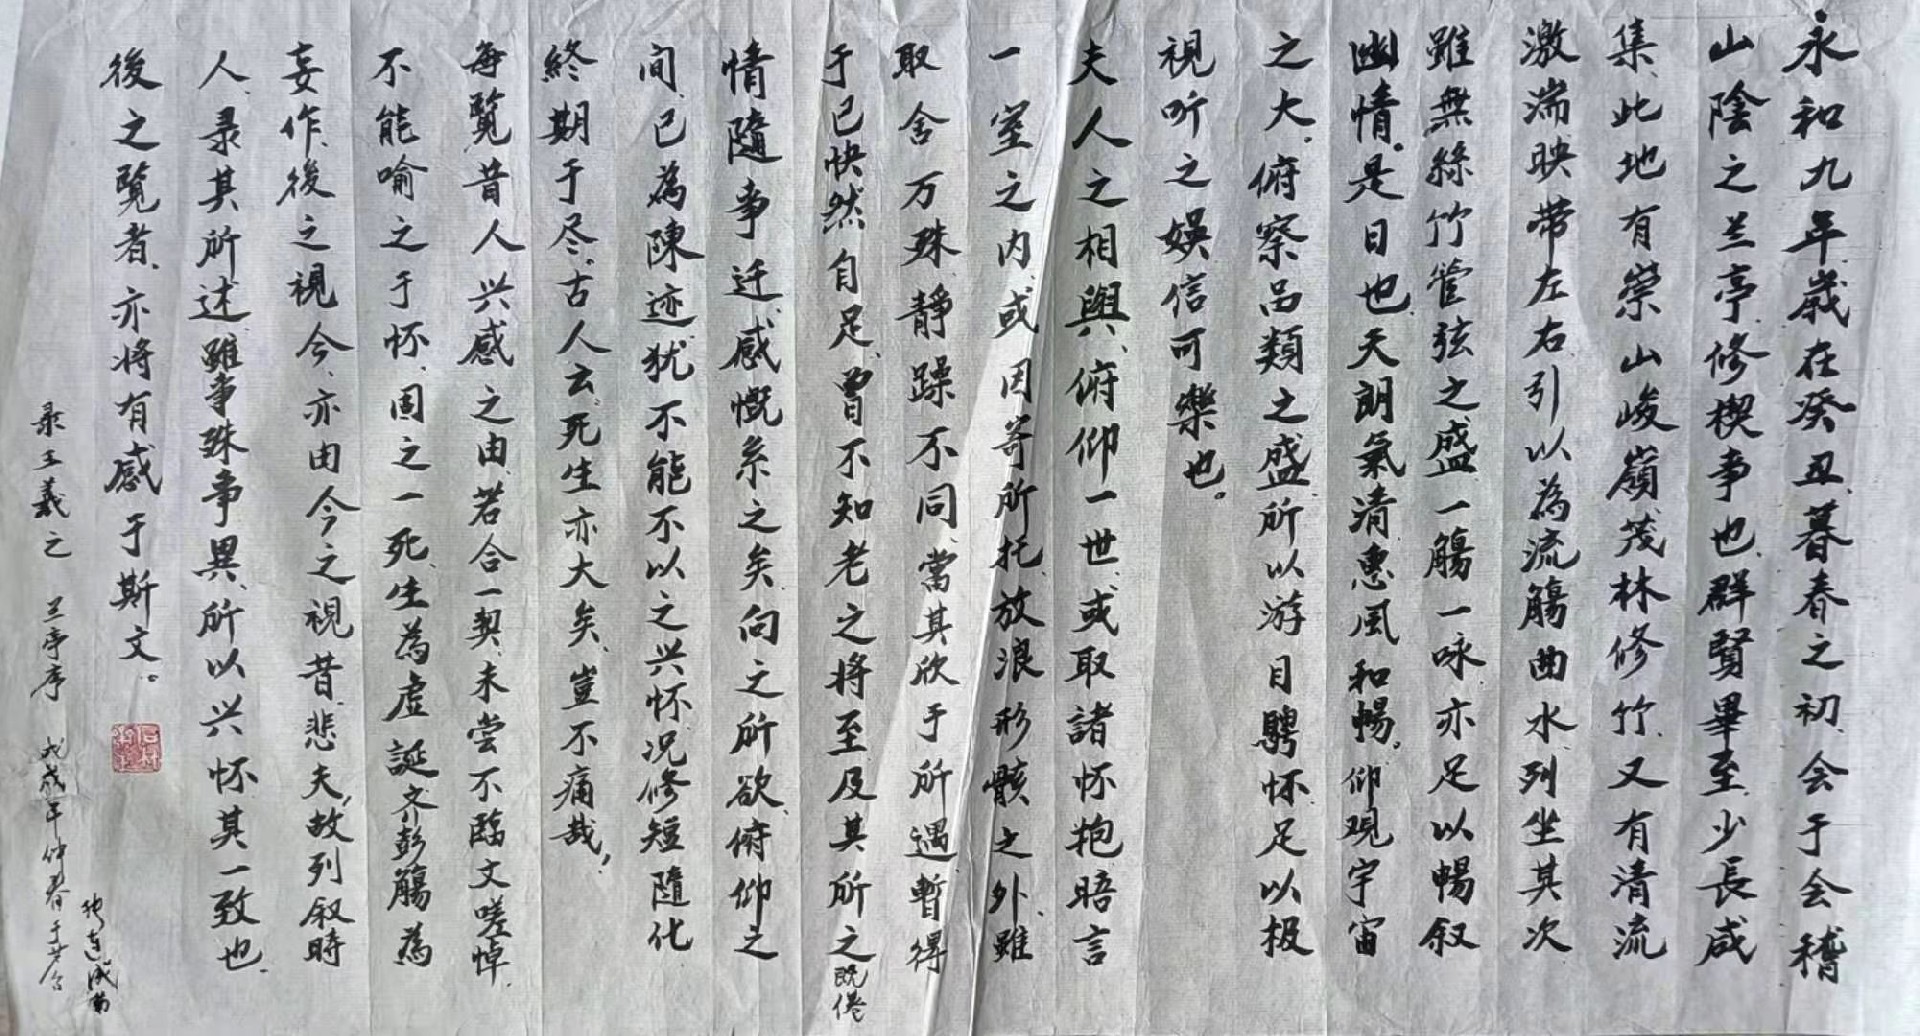 永和九年歲在癸丑、暮春之初、会于会稽
山陰之兰亭、修楔事也、群賢畢至、少長咸
集、此地有崇山峻嶺、茂林修竹、又有清流
激湍、映带左右、引以為流觴曲水、列坐其次
雖無絲竹管弦之盛、一觴一咏、亦足以暢叙
幽情。是日也、天朗氣清、惠風和暢。仰观宇宙
之大。俯察品類之盛、所以游目騁怀、足以极
視听之娱、信可樂也。
夫人之相與、俯仰一世、或取諸怀抱晤言
一室之内、或因寄所托、放浪形骸之外、雖
取舍万殊、静躁不同、當其欣于所遇、暫得
于已、快然自足、曽不知老之将至、及其所之既倦
情隨事迁、感慨系之矣、向之所欲、俯仰之
间、已為陳迹、犹不能不以之兴怀、况修短隨化
終期于尽。古人云、死生亦大矣、豈不痛哉，
每覽昔人兴感之由、若合一契、未尝不臨文嗟悼、
不能喻之于怀、固之一死、生為虚誕、齐彭觴為
妄作、後之視今、亦由今之視昔、悲夫，故列叙時
人、录其所述、雖事殊事異、所以兴怀、其一致也、
後之覧者、亦将有感于斯文。
录王羲之 兰亭序 戊戌年仲春于